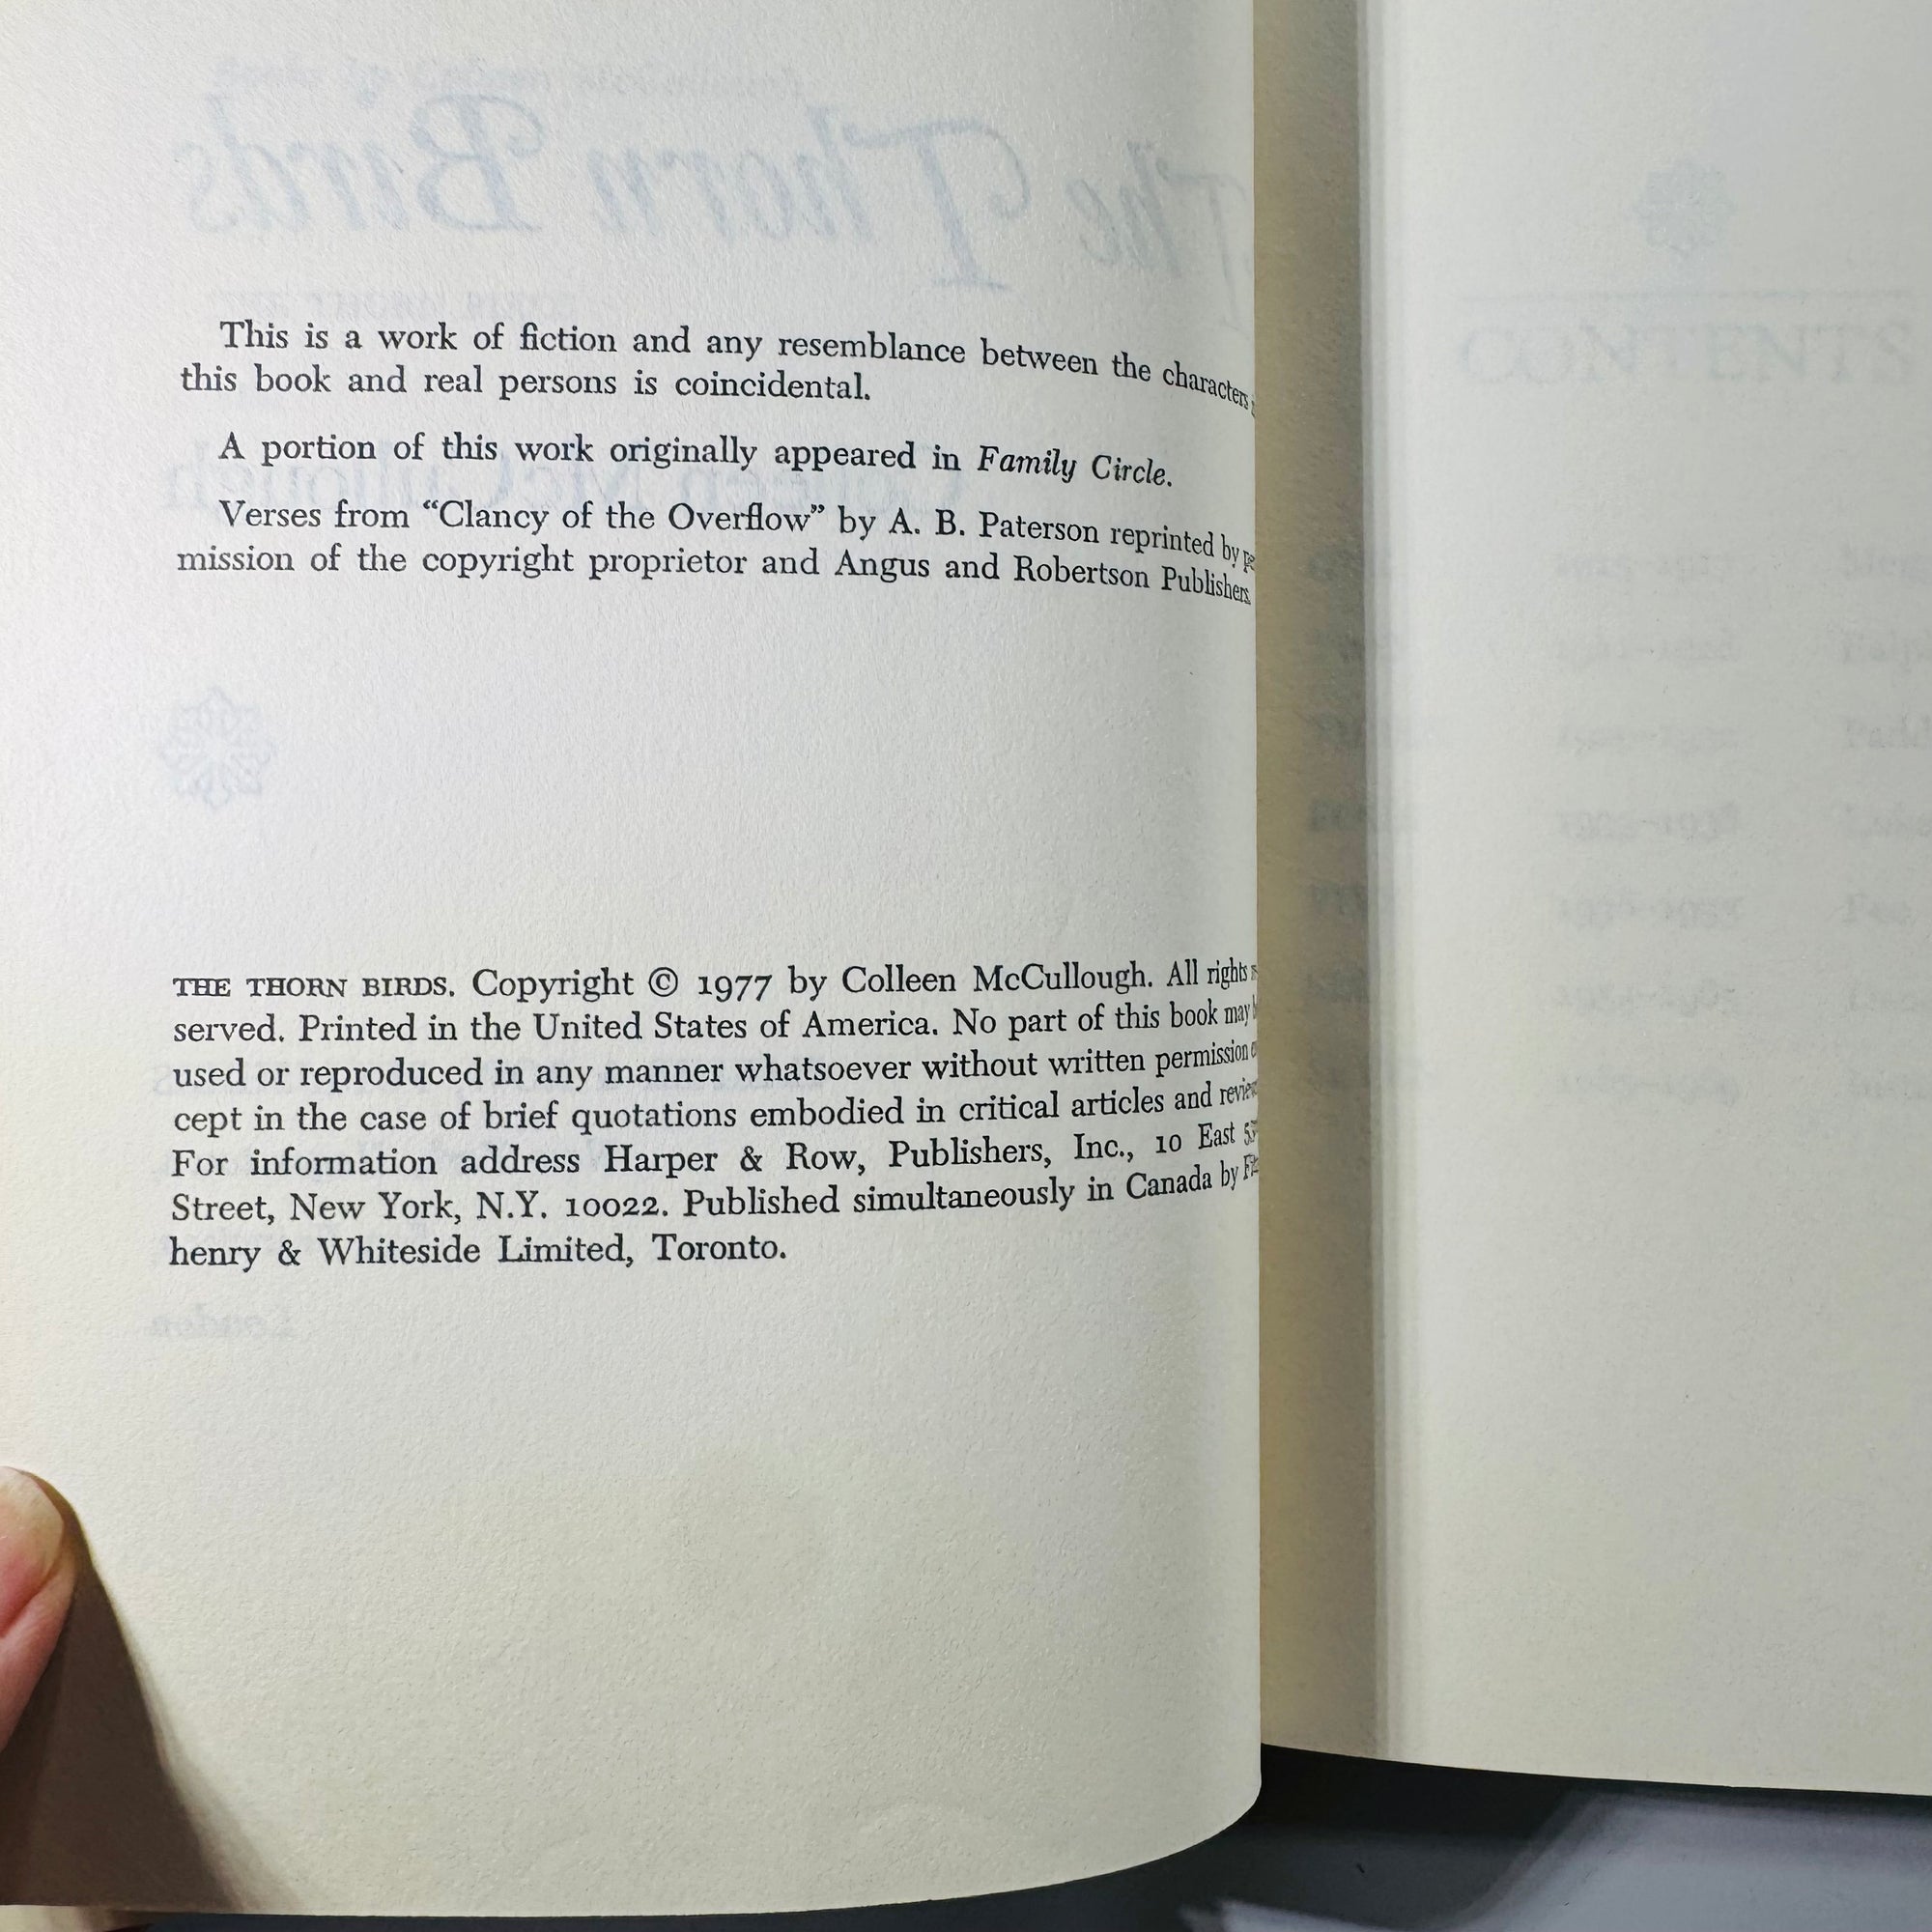 The Thorn Birds
This is a work of fiction and any resemblance between the characters
this book and real persons is coincidental.
A portion of this work originally appeared in Family Circle.
Colleen McCullough
Verses from “Clancy of the Overflow” by A. B. Paterson reprinted by
mission of the copyright proprietor and Angus and Robertson Publishers
THE THORN BIRDS. Copyright © 1977 by Colleen McCullough. All rights
served. Printed in the United States of America. No part of this book may
used or reproduced in any manner whatsoever without written permission
cept in the case of brief quotations embodied in critical articles and
For information address Harper & Row, Publishers, Inc., 10 East
Street, New York, N.Y. 10022. Published simultaneously in Canada by
henry & Whiteside Limited, Toronto.
London